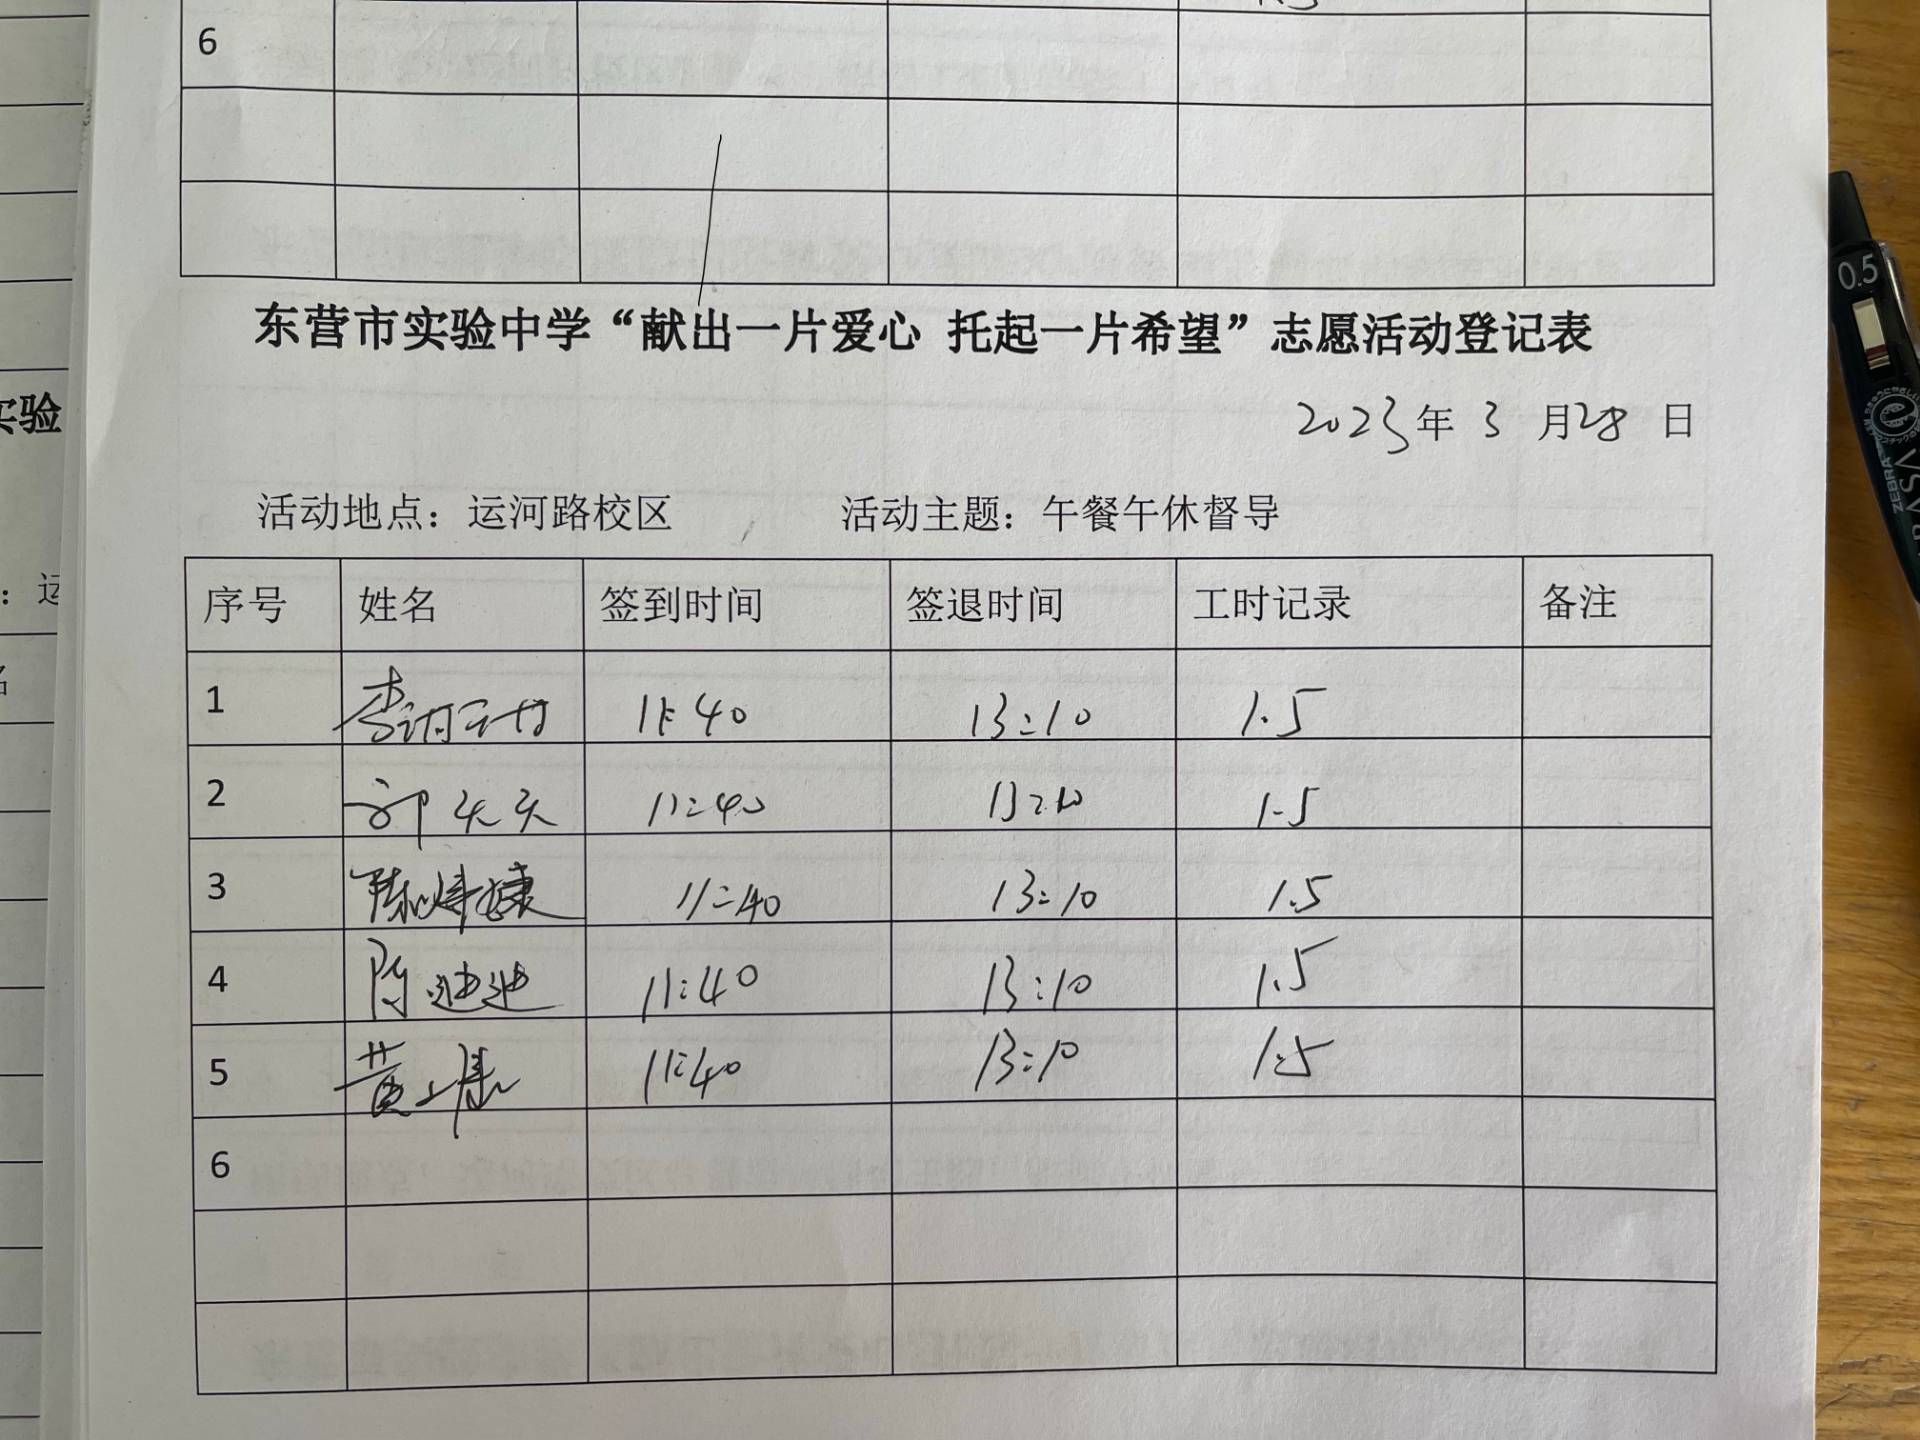 6
东营市实验中学“献出一片爱心 托起一片希望”志愿活动登记表
实验
2023年 3 月28 日
活动地点：运河路校区 活动主题：午餐午休督导
：运
序号 姓名 签到时间 签退时间 工时记录 备注
名
1 李 11:40 13:10 1.5
2 天天 11:40 13:10 1.5
3 陈 11:40 13:10 1.5
4 陈迪迪 11:40 13:10 1.5
5 黄 11:40 13:10 1.5
6
0.5
ZEBRA